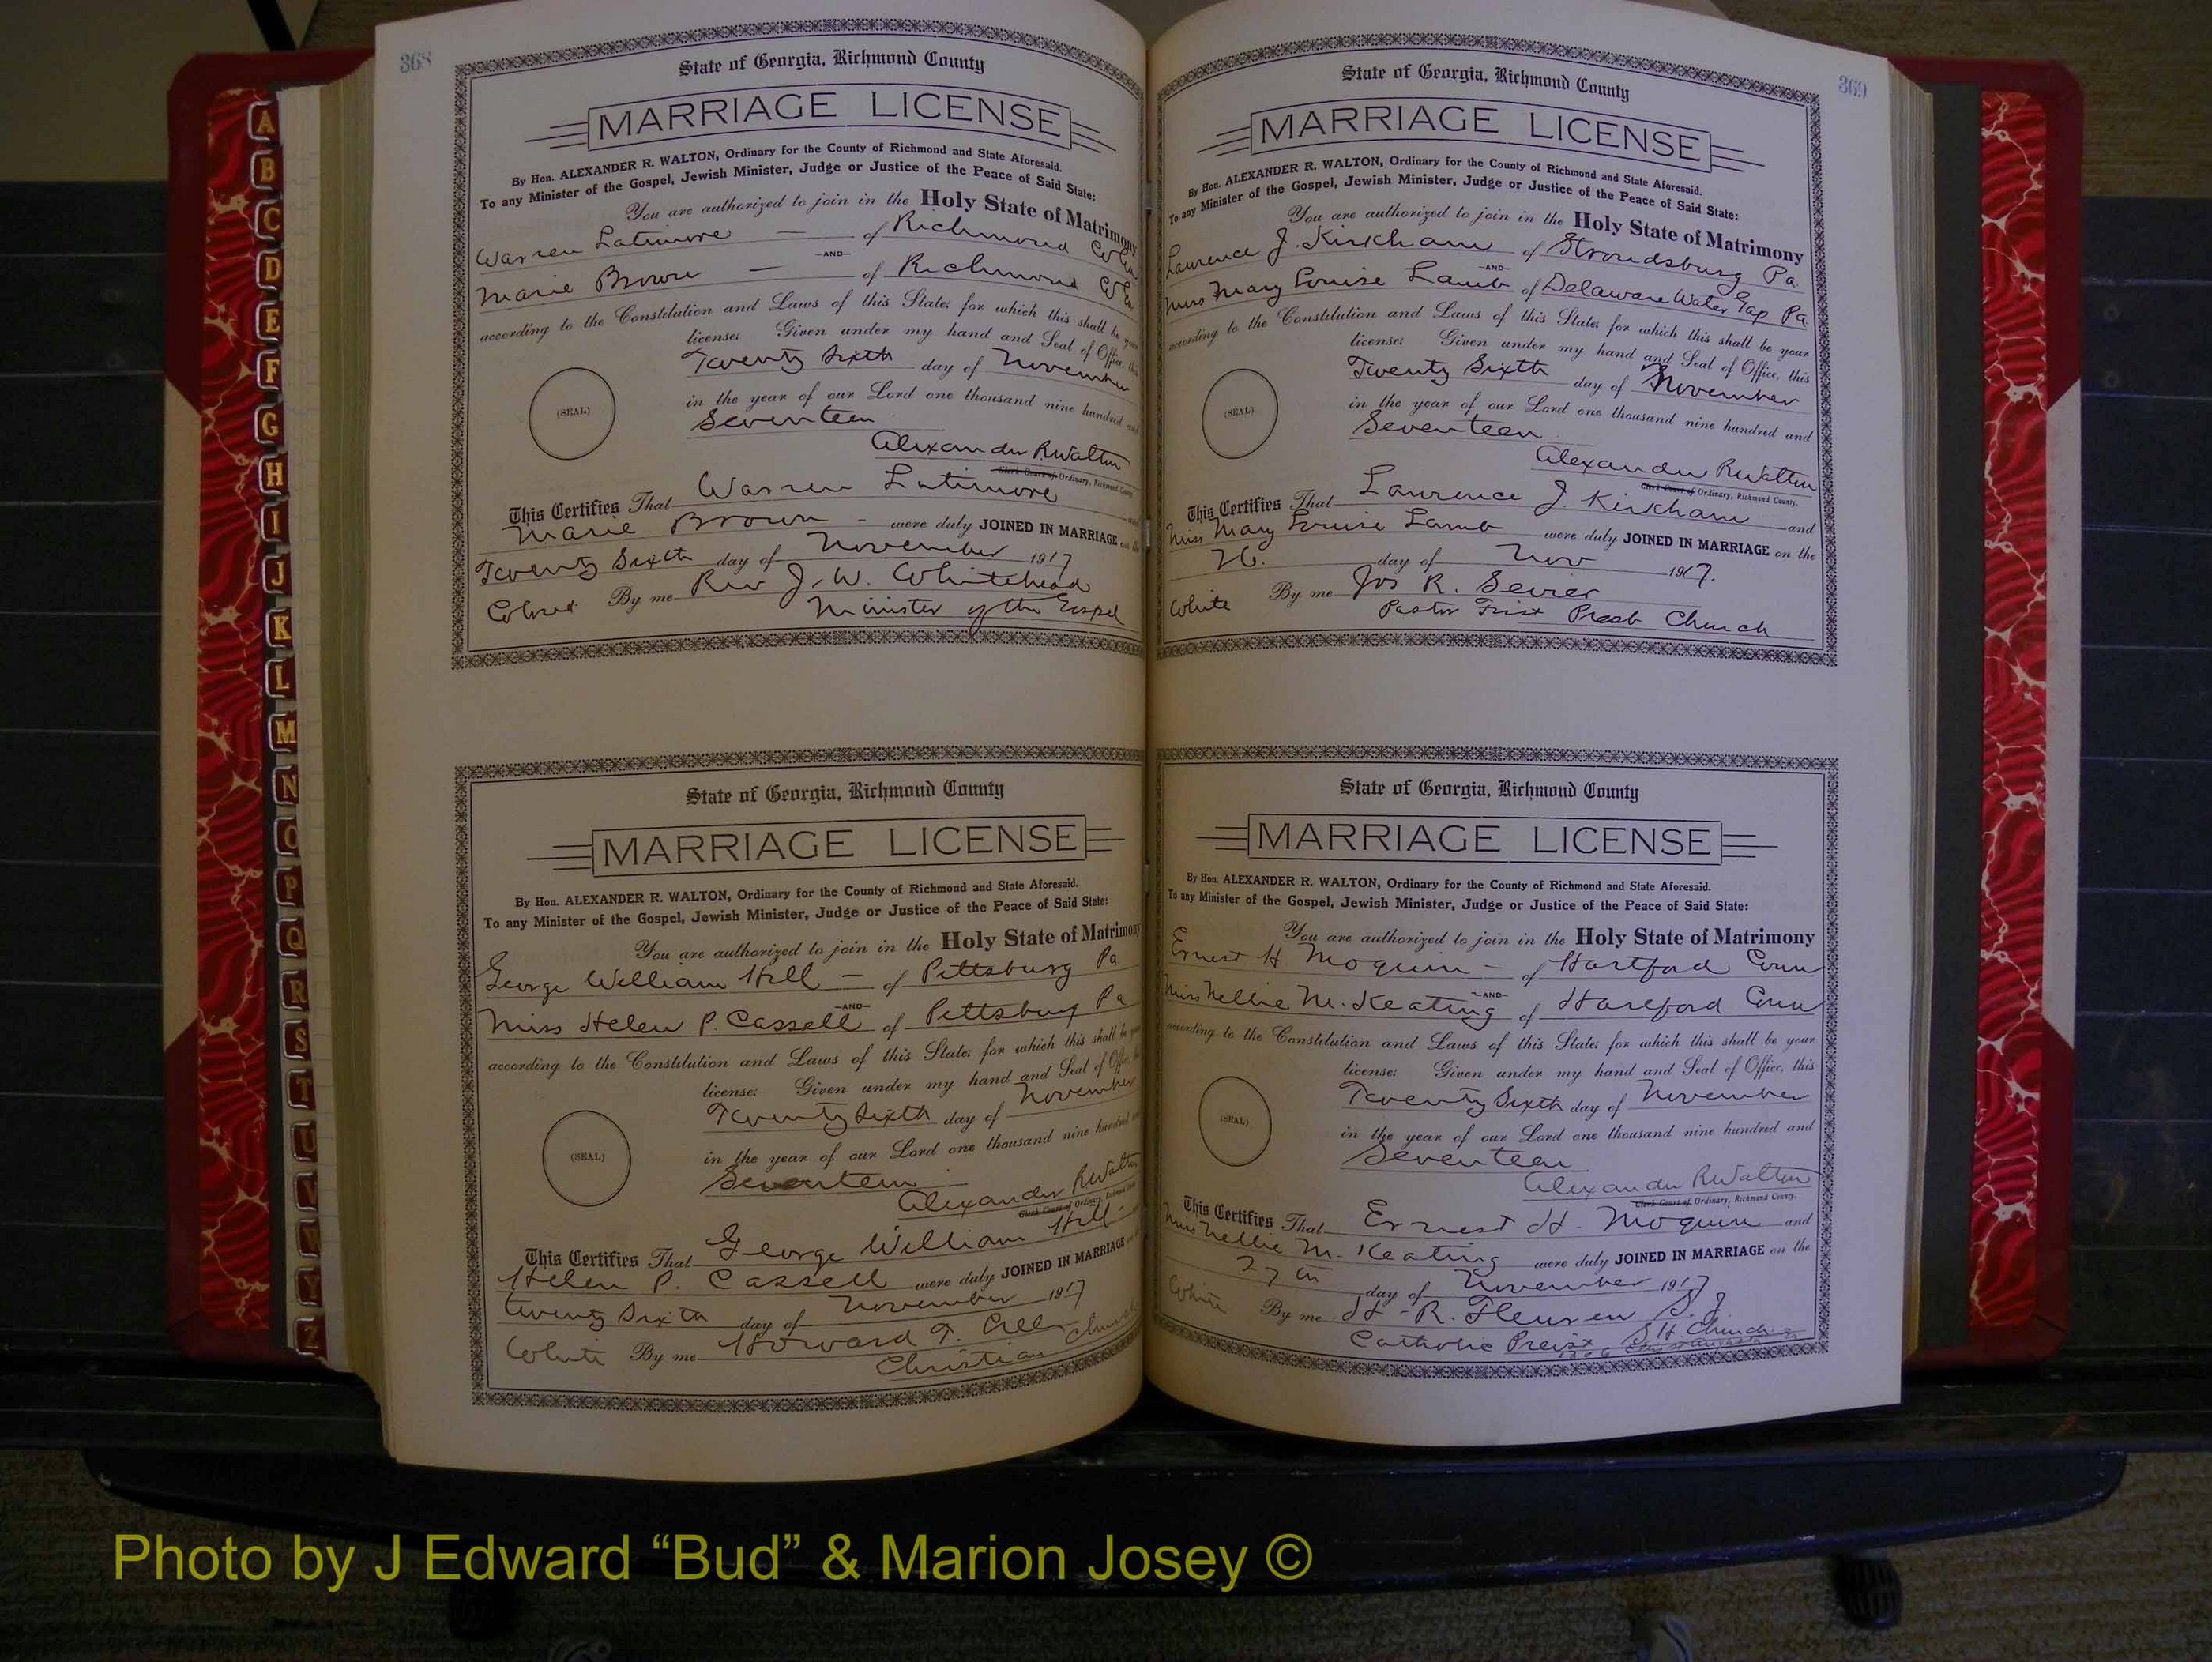 368
State of Georgia, Richmond County
MARRIAGE LICENSE
By Hon. ALEXANDER R. WALTON, Ordinary for the County of Richmond and State Aforesaid.
To any Minister of the Gospel, Jewish Minister, Judge or Justice of the Peace of Said State:
You are authorized to join in the Holy State of Matrimony
Warren Latimore — of Richmond Co Ga
—AND—
Marie Brown — of Richmond Co Ga
according to the Constitution and Laws of this State; for which this shall be your
license: Given under my hand and Seal of Office, this
Twenty Sixth day of November
(SEAL)
in the year of our Lord one thousand nine hundred and
Seventeen
Alexander R Walton
Clerk Court of Ordinary, Richmond County
This Certifies That Warren Latimore
Marie Brown - were duly JOINED IN MARRIAGE on the
Twenty Sixth day of November 1917
Colored By me Rev J. W. Whitehead
Minister of the Gospel
State of Georgia, Richmond County
MARRIAGE LICENSE
By Hon. ALEXANDER R. WALTON, Ordinary for the County of Richmond and State Aforesaid.
To any Minister of the Gospel, Jewish Minister, Judge or Justice of the Peace of Said State:
You are authorized to join in the Holy State of Matrimony
George William Hill — of Pittsburg Pa
—AND—
Miss Helen P. Cassell of Pittsburg Pa
according to the Constitution and Laws of this State; for which this shall be your
license: Given under my hand and Seal of Office, this
Twenty Sixth day of November
(SEAL)
in the year of our Lord one thousand nine hundred and
Seventeen —
Alexander R Walton
Clerk Court of Ordinary, Richmond County
This Certifies That George William Hill
Helen P. Cassell were duly JOINED IN MARRIAGE on
twenty Sixth day of November 1917
White By me Howard T.
Christian Church
369
State of Georgia, Richmond County
MARRIAGE LICENSE
By Hon. ALEXANDER R. WALTON, Ordinary for the County of Richmond and State Aforesaid.
To any Minister of the Gospel, Jewish Minister, Judge or Justice of the Peace of Said State:
You are authorized to join in the Holy State of Matrimony
Laurence J. Kirkham of Stroudsburg Pa.
—AND—
Miss Mary Louise Lamb of Delaware Water Gap Pa
according to the Constitution and Laws of this State; for which this shall be your
license: Given under my hand and Seal of Office, this
Twenty Sixth day of November
(SEAL)
in the year of our Lord one thousand nine hundred and
Seventeen
Alexander R Walton
Clerk Court of Ordinary, Richmond County.
This Certifies That Laurence J. Kirkham and
Miss Mary Louise Lamb were duly JOINED IN MARRIAGE on the
26. day of Nov 1917.
White By me Jos R. Sevier
Pastor First Presb Church
State of Georgia, Richmond County
MARRIAGE LICENSE
By Hon. ALEXANDER R. WALTON, Ordinary for the County of Richmond and State Aforesaid.
To any Minister of the Gospel, Jewish Minister, Judge or Justice of the Peace of Said State:
You are authorized to join in the Holy State of Matrimony
Ernest H Moquin — of Hartford Conn
—AND—
Miss Nellie M. Keating of Hartford Conn
according to the Constitution and Laws of this State; for which this shall be your
license: Given under my hand and Seal of Office, this
Twenty Sixth day of November
(SEAL)
in the year of our Lord one thousand nine hundred and
Seventeen
Alexander R Walton
Clerk Court of Ordinary, Richmond County.
This Certifies That Ernest H. Moquin and
Miss Nellie M. Keating were duly JOINED IN MARRIAGE on the
27th day of November 1917
White By me H - R. Fleuren S. J.
Catholic Preist S. H. Church
A
B
C
D
E
F
G
H
I
J
K
L
M
N
O
P
Q
R
S
T
U
V
W
Y
Z
Photo by J Edward “Bud” & Marion Josey ©